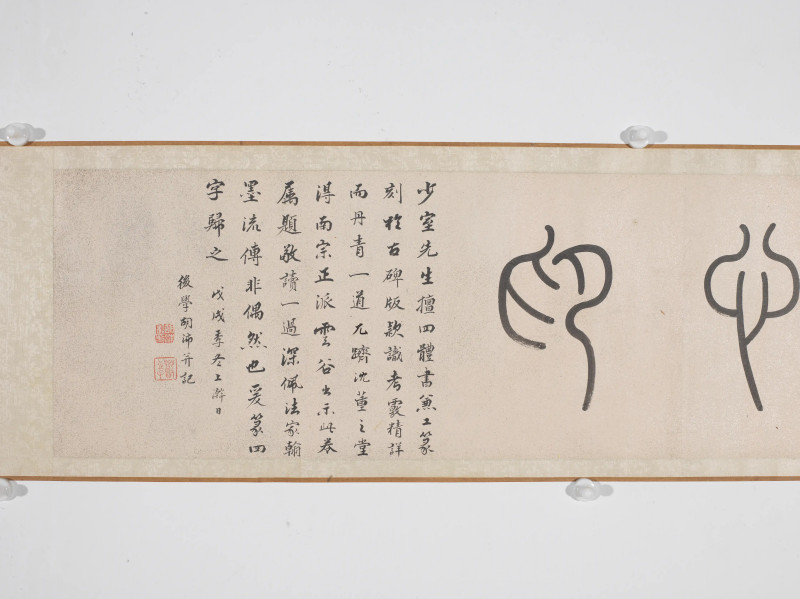 少室先生擅四體書兼工篆
刻於古碑版款識考覈精詳
而丹青一道尤躋沈董之堂
得南宗正派雲谷出示此卷
属題敬讀一過深佩法家翰
墨流傳非偶然也爰篆四
字歸之
戊戌季冬上澣日
後學胡沛并記